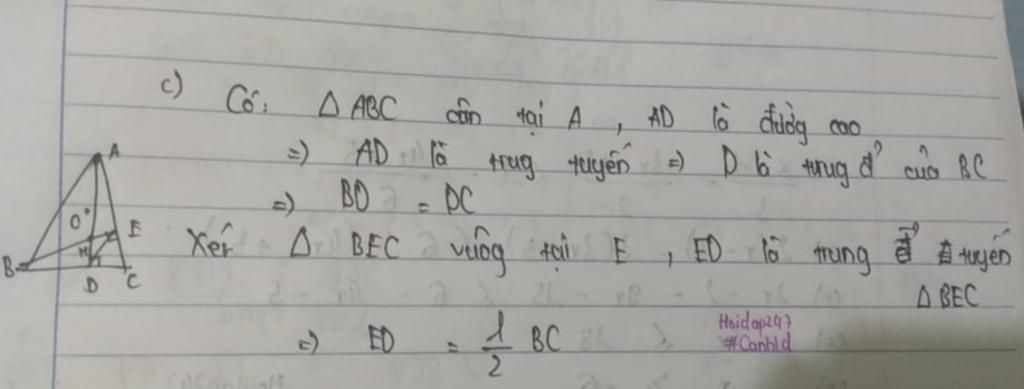 c) Có: △ ABC cân tại A, AD là đường cao
=) AD là trug tuyến =) D là trug đ' của BC
=) BD = DC
A
O
E
H
B
D
C
Xét △ BEC vuông tại E, ED là trung tuyến
△ BEC
=) ED = 1/2 BC
Hoidap247
#Canhld